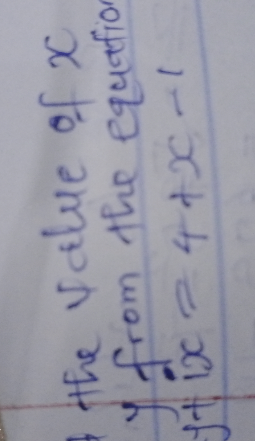 the value of x
y from the equation
y + ix = 4 + x - 1